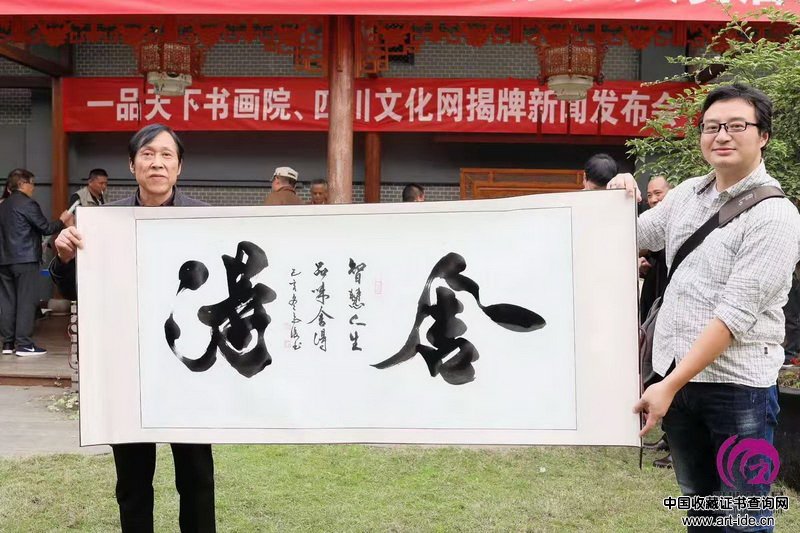 一品天下书画院、四川文化网揭牌新闻发布会
舍
智慧人生
品味舍得
得
中国收藏证书查询网
www.art-ide.cn